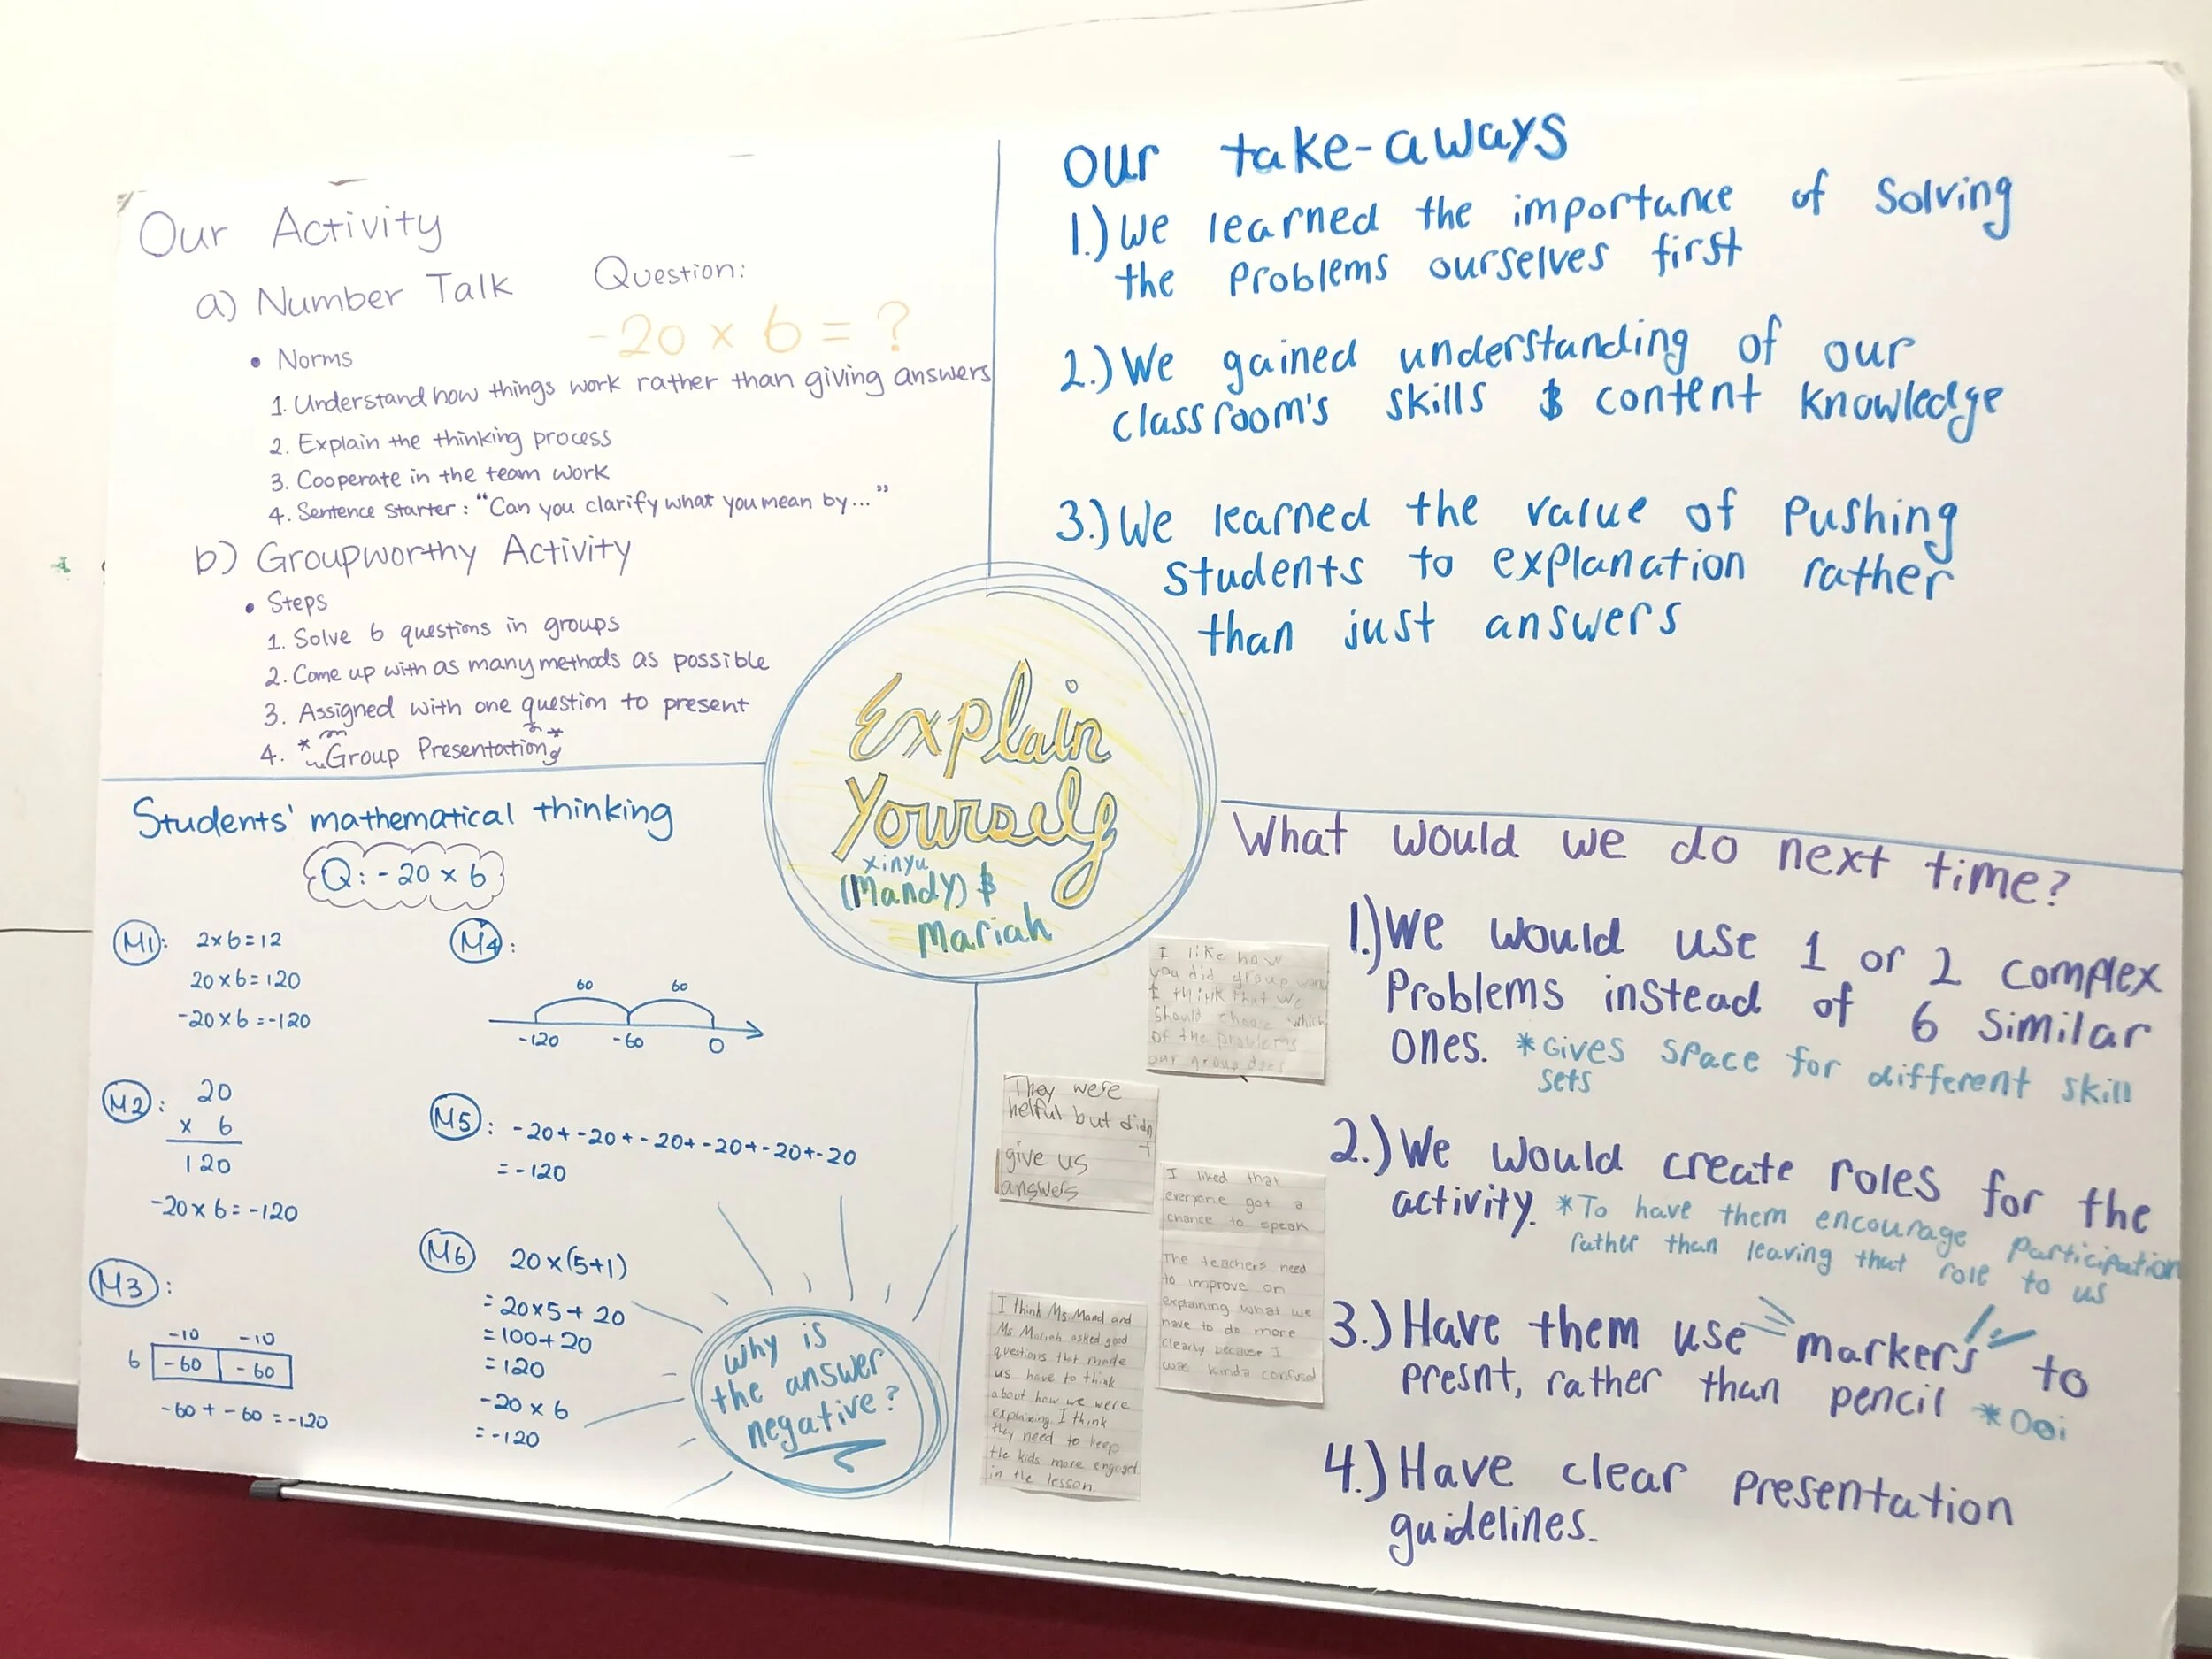 Our Activity
a) Number Talk
Question:
-20 × 6 = ?
• Norms
1. Understand how things work rather than giving answers
2. Explain the thinking process
3. Cooperate in the team work
4. Sentence Starter: "Can you clarify what you mean by..."
b) Groupworthy Activity
• Steps
1. Solve 6 questions in groups
2. Come up with as many methods as possible
3. Assigned with one question to present
4. * Group Presentation *
Our take-aways
1.) We learned the importance of solving
the problems ourselves first
2.) We gained understanding of our
classroom's skills & content knowledge
3.) We learned the value of pushing
students to explanation rather
than just answers
Explain
Yourself
Xinyu
(Mandy) &
Mariah
Students' mathematical thinking
Q: -20 × 6
M1:
2×6=12
20×6=120
-20×6=-120
M2:
20
× 6
120
-20×6=-120
M3:
-10 -10
6 -60 -60
-60 + -60 = -120
M4:
60 60
-120 -60 0
M5: -20+-20+-20+-20+-20+-20
= -120
M6 20×(5+1)
= 20×5+20
= 100+20
= 120
-20×6
= -120
Why is
the answer
negative?
What would we do next time?
1.) We would use 1 or 2 complex
Problems instead of 6 similar
ones. *Gives space for different skill
sets
2.) We would create roles for the
activity. *To have them encourage participation
rather than leaving that role to us
3.) Have them use markers to
presnt, rather than pencil *Ooi
4.) Have clear presentation
guidelines.
I like how
you did group work
I think that we
should choose which
of the problems
our group does
They were
helful but didn
t
give us
answers
I liked that
everyone got a
chance to speak
The teachers need
to improve on
explaining what we
have to do more
clearly because I
was kinda confused
I think Ms. Mand and
Ms Mariah asked good
questions that made
us have to think
about how we were
explaining. I think
they need to keep
the kids more engaged
in the lesson.